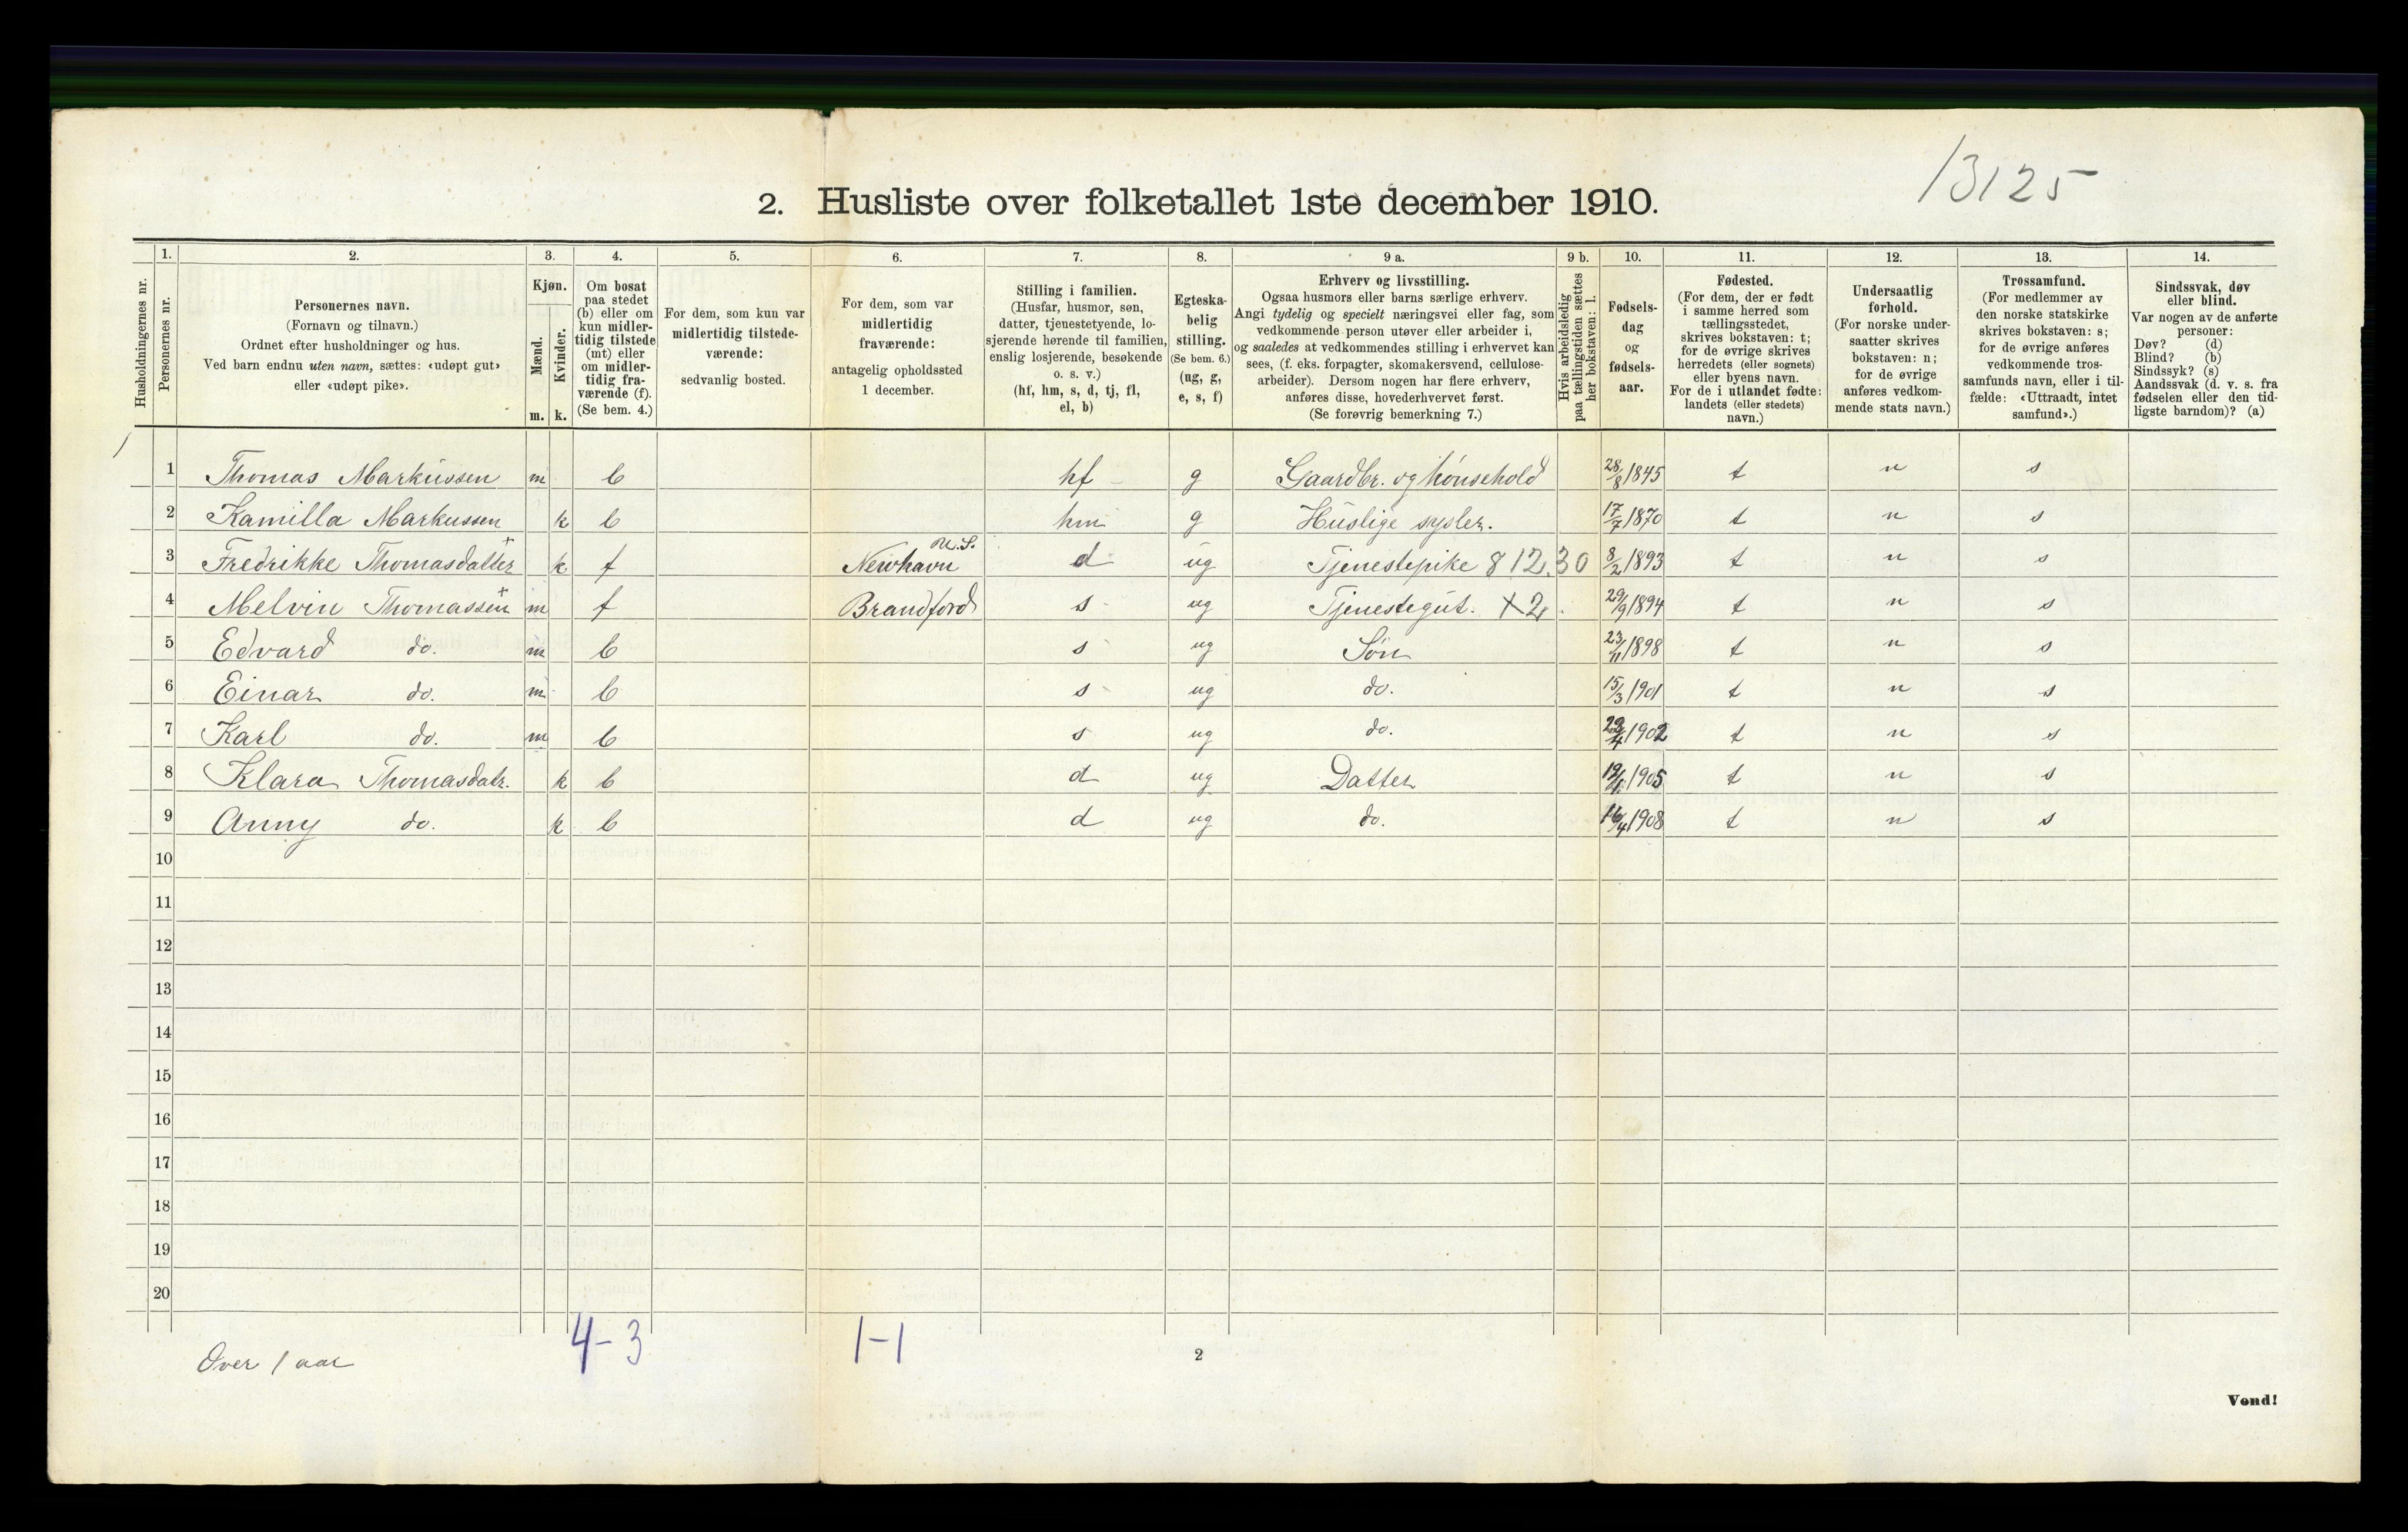 13125
2. Husliste over folketallet 1ste december 1910.
Husholdningernes nr.
1. Personernes nr.
2. Personernes navn.
(Fornavn og tilnavn.)
Ordnet efter husholdninger og hus.
Ved barn endnu uten navn, sættes: «udøpt gut»
eller «udøpt pike».
3. Kjøn.
Mænd. m.
Kvinder. k.
4. Om bosat
paa stedet
(b) eller om
kun midler-
tidig tilstede
(mt) eller
om midler-
tidig fra-
værende (f).
(Se bem. 4.)
5. For dem, som kun var
midlertidig tilstede-
værende:
sedvanlig bosted.
6. For dem, som var
midlertidig
fraværende:
antagelig opholdssted
1 december.
7. Stilling i familien.
(Husfar, husmor, søn,
datter, tjenestetyende, lo-
sjerende hørende til familien,
enslig losjerende, besøkende
o. s. v.)
(hf, hm, s, d, tj, fl,
el, b)
8. Egteska-
belig
stilling.
(Se bem. 6.)
(ug, g,
e, s, f)
9 a. Erhverv og livsstilling.
Ogsaa husmors eller barns særlige erhverv.
Angi tydelig og specielt næringsvei eller fag, som
vedkommende person utøver eller arbeider i,
og saaledes at vedkommendes stilling i erhvervet kan
sees, (f. eks. forpagter, skomakersvend, cellulose-
arbeider). Dersom nogen har flere erhverv,
anføres disse, hovederhvervet først.
(Se forøvrig bemerkning 7.)
9 b. Hvis arbeidsledig
paa tællingstiden sættes
her bokstaven: l.
10. Fødsels-
dag
og
fødsels-
aar.
11. Fødested.
(For dem, der er født
i samme herred som
tællingsstedet,
skrives bokstaven: t;
for de øvrige skrives
herredets (eller sognets)
eller byens navn.
For de i utlandet fødte:
landets (eller stedets)
navn.)
12. Undersaatlig
forhold.
(For norske under-
saatter skrives
bokstaven: n;
for de øvrige
anføres vedkom-
mende stats navn.)
13. Trossamfund.
(For medlemmer av
den norske statskirke
skrives bokstaven: s;
for de øvrige anføres
vedkommende tros-
samfunds navn, eller i til-
fælde: «Uttraadt, intet
samfund».)
14. Sindssvak, døv
eller blind.
Var nogen av de anførte
personer:
Døv? (d)
Blind? (b)
Sindssyk? (s)
Aandssvak (d. v. s. fra
fødselen eller den tid-
ligste barndom)? (a)
1 1 Thomas Markussen m b hf g Gaardbr. og hønsehold 28/8 1845 t n s
2 Kamilla Markussen k b hm g Huslige sysler. 17/7 1870 t n s
3 Fredrikke Thomasdatter + k f Newhavn U.S. d ug Tjenestepike 8 12.30 8/2 1893 t n s
4 Melvin Thomassen + m f Brandford s ug Tjenestegut. X2 29/9 1894 t n s
5 Edvard do. m b s ug Søn 23/11 1898 t n s
6 Einar do. m b s ug do. 15/3 1901 t n s
7 Karl do. m b s ug do. /4 1902 t n s
8 Klara Thomasdatr. k b d ug Datter 1905 t n s
9 Anny do. k b d ug do. 16/4 1908 t n s
10
11
12
13
14
15
16
17
18
19
20
4-3 1-1
Over 1 aar
2
Vend!